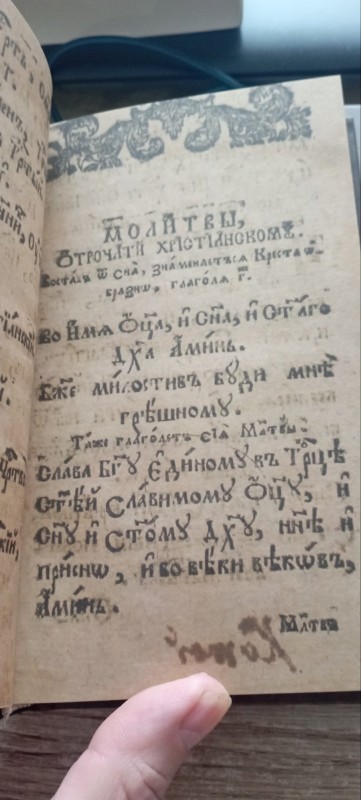 МОЛИТВЫ,
ѾТРОЧАТИ ХРИСТІАНСКОМꙋ.
Воставъ ѿ сна, знаменается Креста ѻ҆-
бразнѡ, глаголя г҃.
Во И҆мя Ѻ҆ц҃а, и҆ Сн҃а, и҆ Ст҃аго
Дх҃а А҆минь.
Бж҃е милостивъ бꙋди мнѣ
грѣшномꙋ.
Таже глаголетъ сїя Мл҃твы:
Слава Бг҃ꙋ Є҆диномꙋ въ Трⷪ҇цѣ
Ст҃ѣй Славимомꙋ Ѻ҆ц҃ꙋ, и҆
Сн҃ꙋ и҆ Ст҃омꙋ Дх҃ꙋ, нн҃ѣ и҆
приснѡ, и҆ во вѣки вѣкѡвъ,
А҆минь.
Мл҃тва